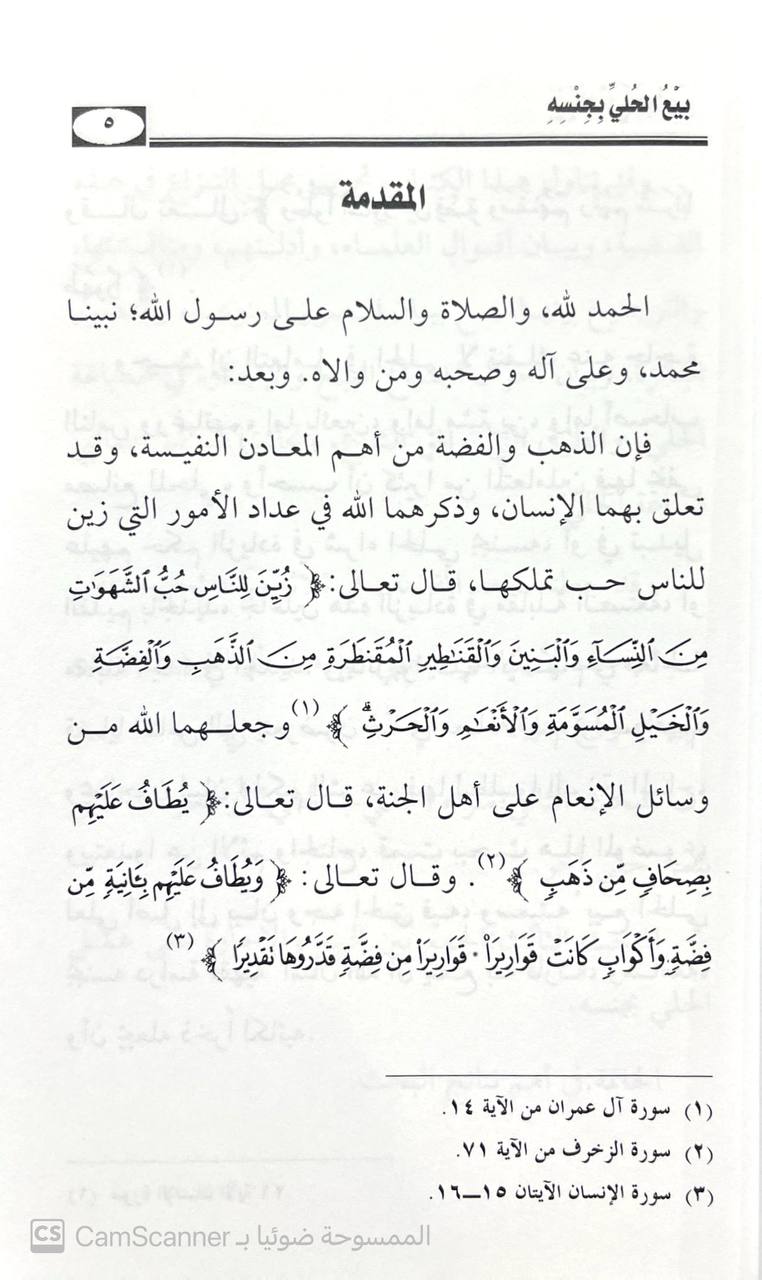 بَيْعُ الحُليِّ بِجِنْسِهِ
٥
المقدمة
الحمد لله، والصلاة والسلام على رسول الله؛ نبينا
محمد، وعلى آله وصحبه ومن والاه. وبعد:
فإن الذهب والفضة من أهم المعادن النفيسة، وقد
تعلق بهما الإنسان، وذكرهما الله في عداد الأمور التي زين
للناس حب تملكها، قال تعالى: ﴿ زُيِّنَ لِلنَّاسِ حُبُّ ٱلشَّهَوَٰتِ
مِنَ ٱلنِّسَآءِ وَٱلْبَنِينَ وَٱلْقَنَٰطِيرِ ٱلْمُقَنطَرَةِ مِنَ ٱلذَّهَبِ وَٱلْفِضَّةِ
وَٱلْخَيْلِ ٱلْمُسَوَّمَةِ وَٱلْأَنْعَٰمِ وَٱلْحَرْثِۗ ﴾ (١) وجعلهما الله من
وسائل الإنعام على أهل الجنة، قال تعالى: ﴿ يُطَافُ عَلَيْهِم
بِصِحَافٍ مِّن ذَهَبٍ ﴾ (٢). وقال تعالى: ﴿ وَيُطَافُ عَلَيْهِم بِـَٔانِيَةٍ مِّن
فِضَّةٍ وَأَكْوَابٍ كَانَتْ قَوَارِيرَا۠ ۰ قَوَارِيرَا۟ مِن فِضَّةٍ قَدَّرُوهَا تَقْدِيرًا ﴾ (٣)
(١) سورة آل عمران من الآية ١٤.
(٢) سورة الزخرف من الآية ٧١.
(٣) سورة الإنسان الآيتان ١٥ــ١٦.
CS CamScanner الممسوحة ضوئيا بـ